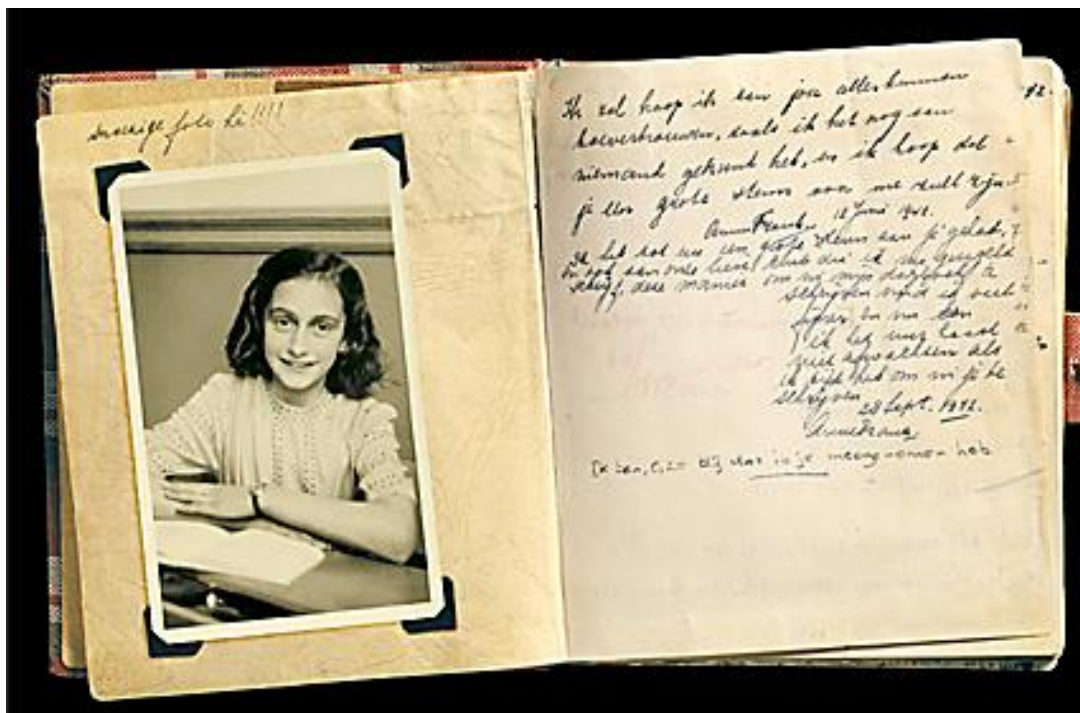 snoezige foto hè!!!!
12.
Ik zal hoop ik aan jou alles kunnen
toevertrouwen, zoals ik het nog aan
niemand gekund heb, en ik hoop dat
je een grote steun voor me zult zijn.
Anne Frank. 12 Juni 1942.
Ik heb tot nu een grote steun aan je gehad,
en ook aan onze lieve club die ik nu geregeld
schrijf, deze manier om in mijn dagboek te
schrijven vind ik veel
fijner en nu kan
ik het uur haast
niet afwachten als
ik tijd heb om in je te
schrijven
28 Sept. 1942.
Anne Frank
Ik ben, o, zo blij dat ik je meegenomen heb